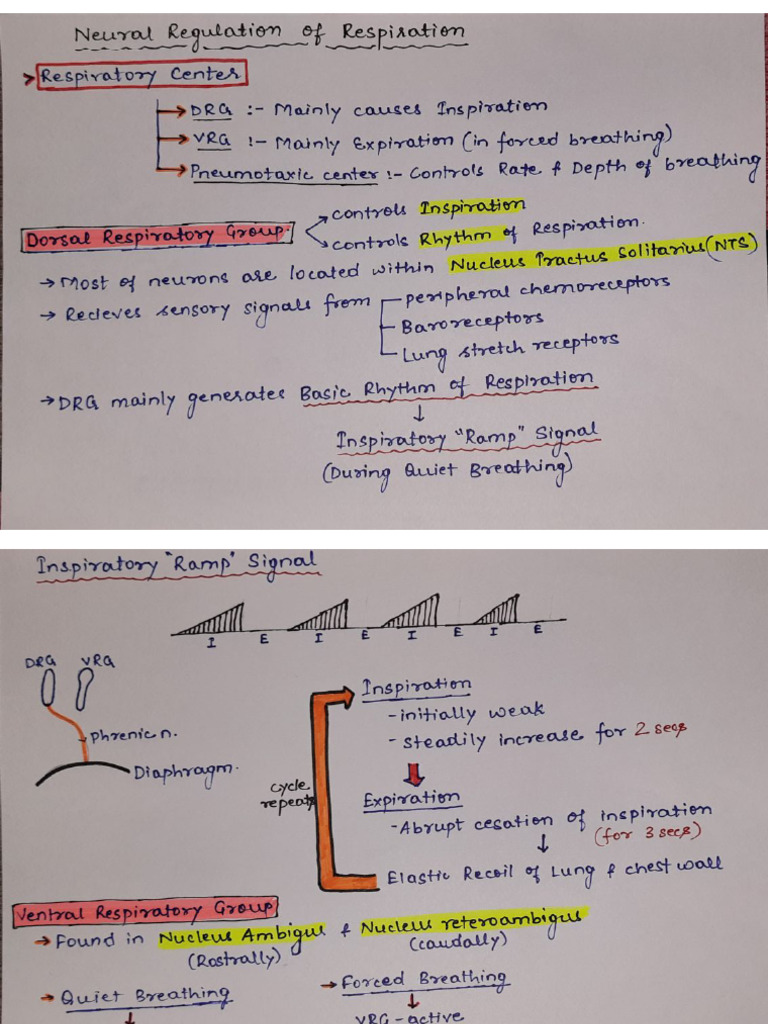 Neural Regulation of Respiration
Respiratory Center
DRG :- Mainly causes Inspiration
VRG :- Mainly Expiration (in forced breathing)
Pneumotaxic center :- Controls Rate & Depth of breathing
Dorsal Respiratory Group.
controls Inspiration
controls Rhythm of Respiration.
→ Most of neurons are located within Nucleus Tractus Solitarius (NTS)
→ Recieves sensory signals from
peripheral chemoreceptors
Baroreceptors
Lung stretch receptors
→ DRG mainly generates Basic Rhythm of Respiration
↓
Inspiratory "Ramp" Signal
(During Quiet Breathing)
Inspiratory "Ramp" Signal
I E I E I E I E
DRG VRG
Phrenic n.
Diaphragm.
Inspiration
- initially weak
- steadily increase for 2 secs
cycle
repeats
Expiration
- Abrupt cesation of inspiration
(for 3 secs)
↓
Elastic Recoil of Lung & chest wall
Ventral Respiratory Group
→ Found in Nucleus Ambigus & Nucleus reteroambigus
(Rostrally) (caudally)
→ Quiet Breathing
→ Forced Breathing
↓
VRG - active